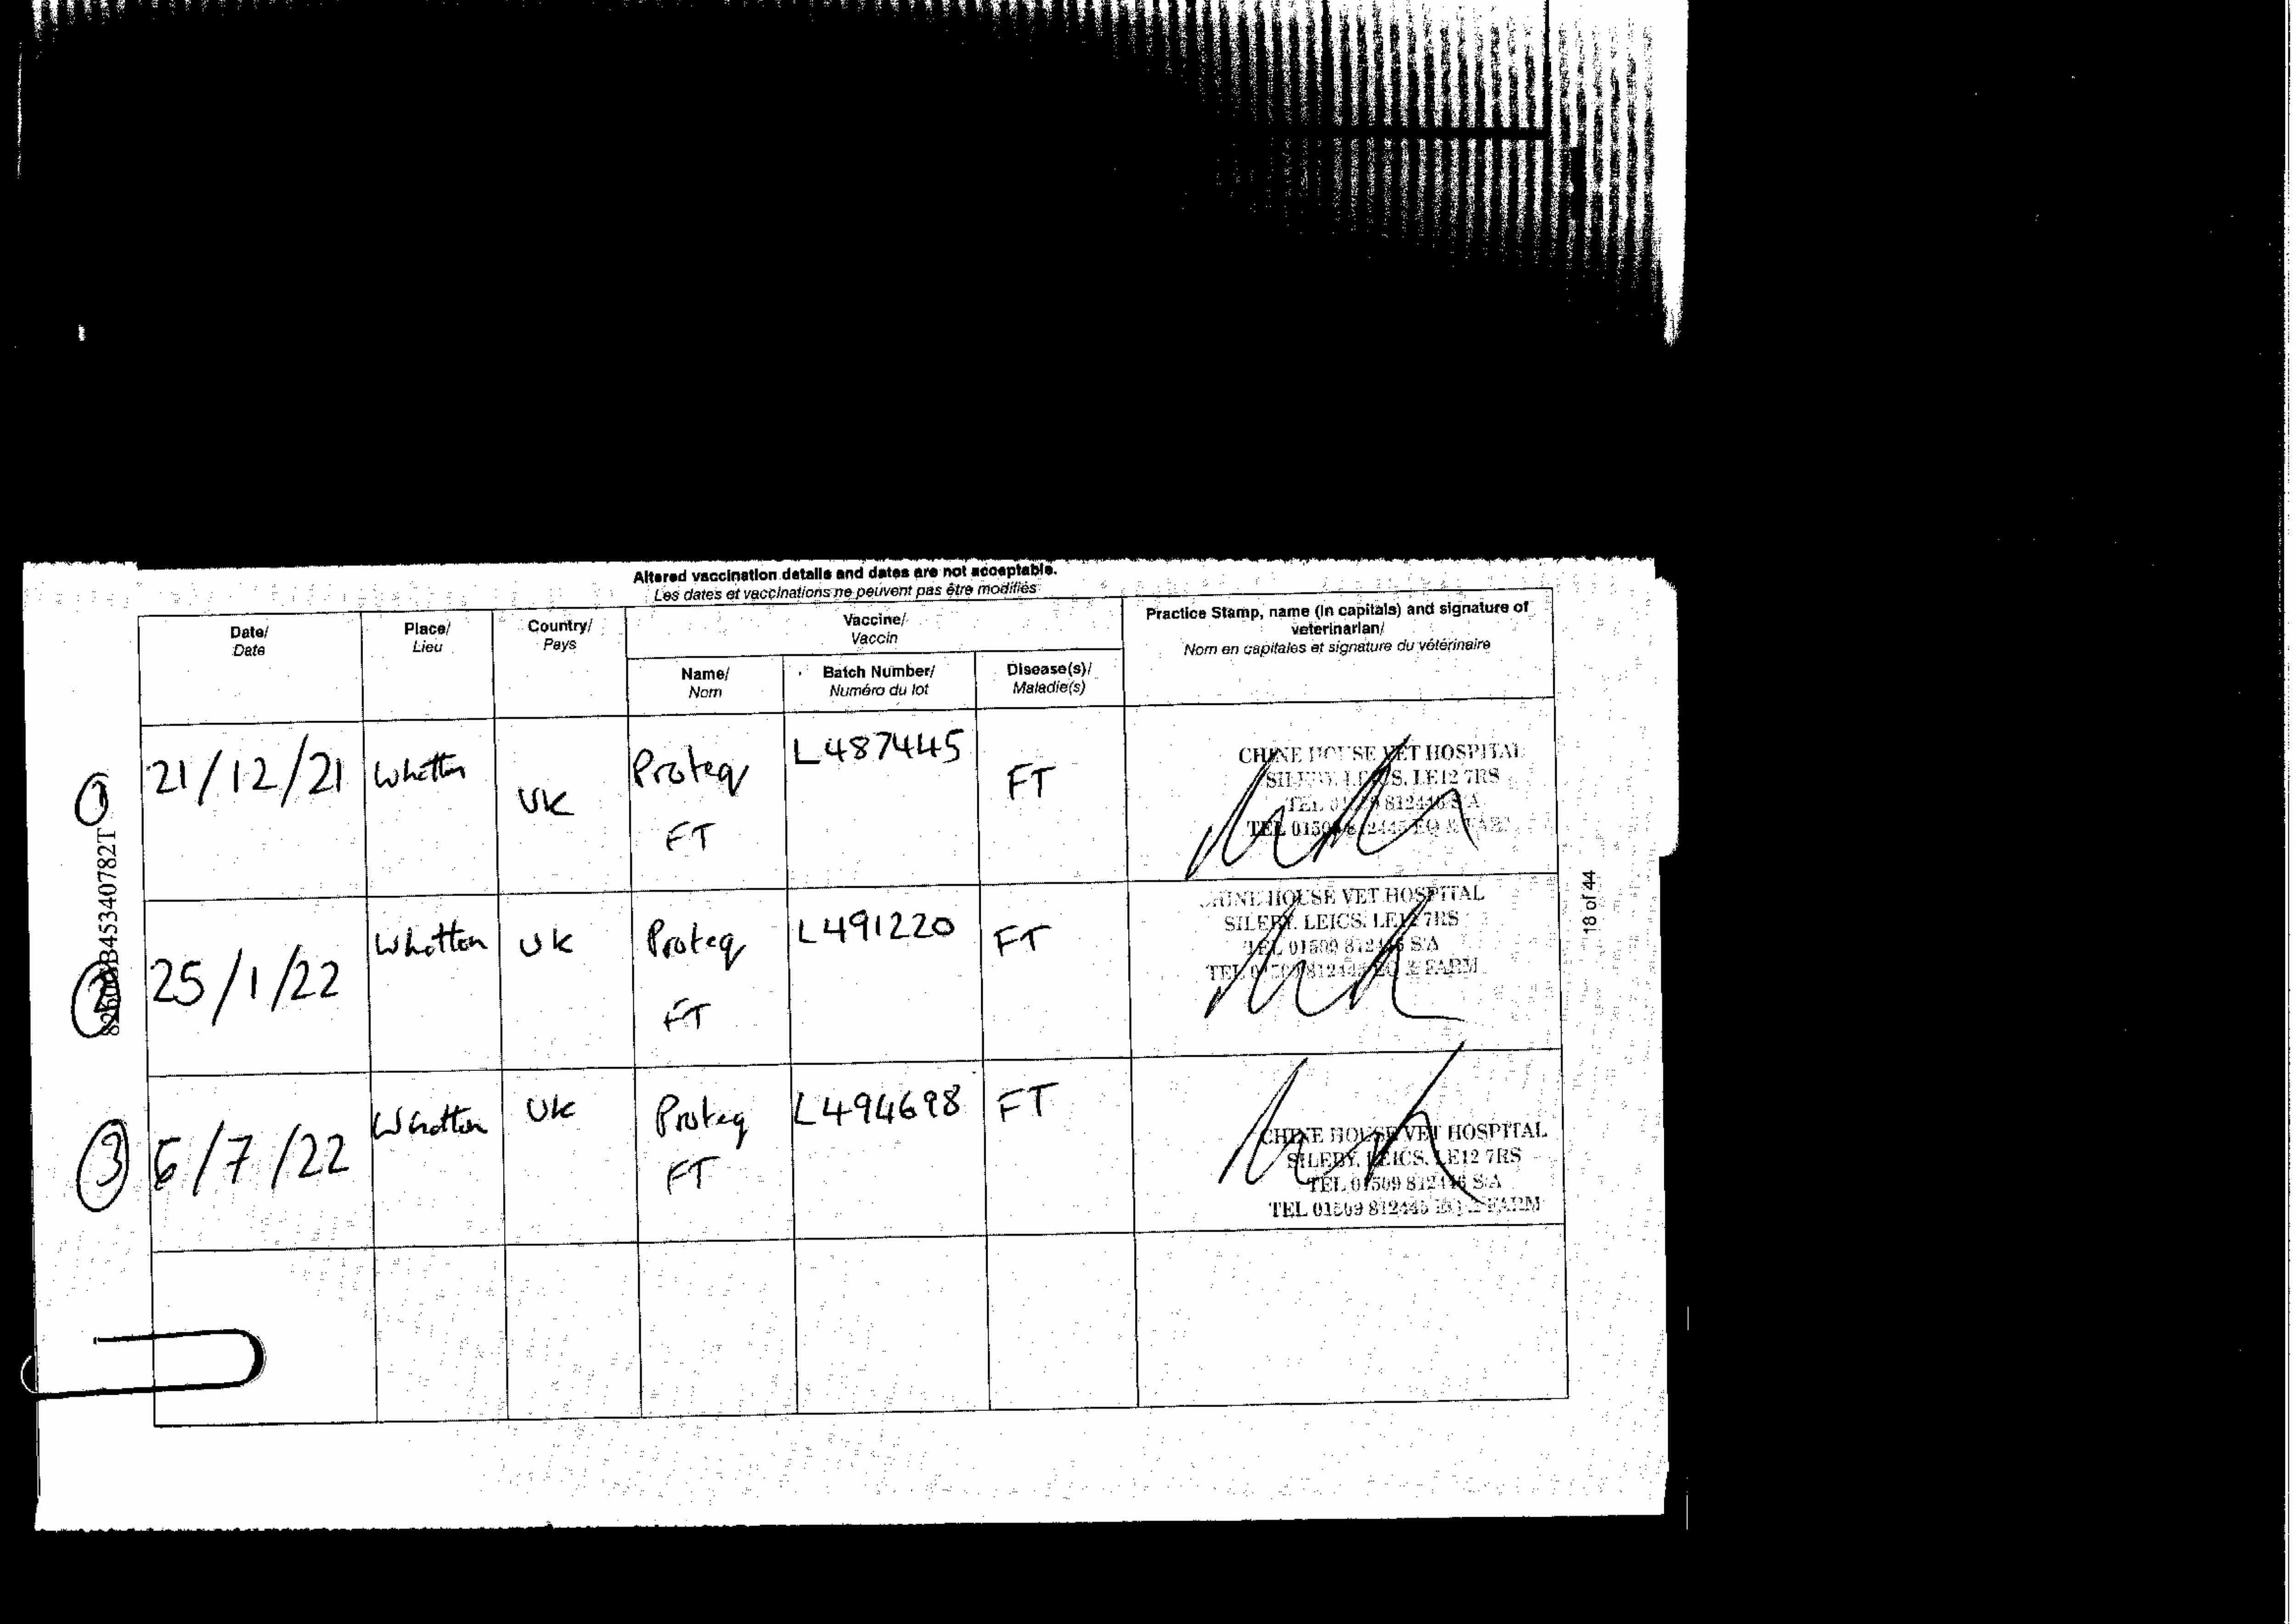 Altered vaccination details and dates are not acceptable.
Les dates et vaccinations ne peuvent pas être modifiés
Date/
Date
Place/
Lieu
Country/
Pays
Vaccine/
Vaccin
Name/
Nom
Batch Number/
Numéro du lot
Disease(s)/
Maladie(s)
Practice Stamp, name (in capitals) and signature of
veterinarian/
Nom en capitales et signature du vétérinaire
1
21/12/21
Whatton
UK
Proteq
FT
L487445
FT
CHINE HOUSE VET HOSPITAL
SILEBY, LEICS. LE12 7RS
TEL 01509 812446 S/A
TEL 01509 812445 EQ & FARM
2
25/1/22
Whatton
UK
Proteq
FT
L491220
FT
CHINE HOUSE VET HOSPITAL
SILEBY, LEICS. LE12 7RS
TEL 01509 812446 S/A
TEL 01509 812445 EQ & FARM
3
6/7/22
Whatton
UK
Proteq
FT
L494698
FT
CHINE HOUSE VET HOSPITAL
SILEBY, LEICS. LE12 7RS
TEL 01509 812446 S/A
TEL 01509 812445 EQ & FARM
B45340782T
18 of 44